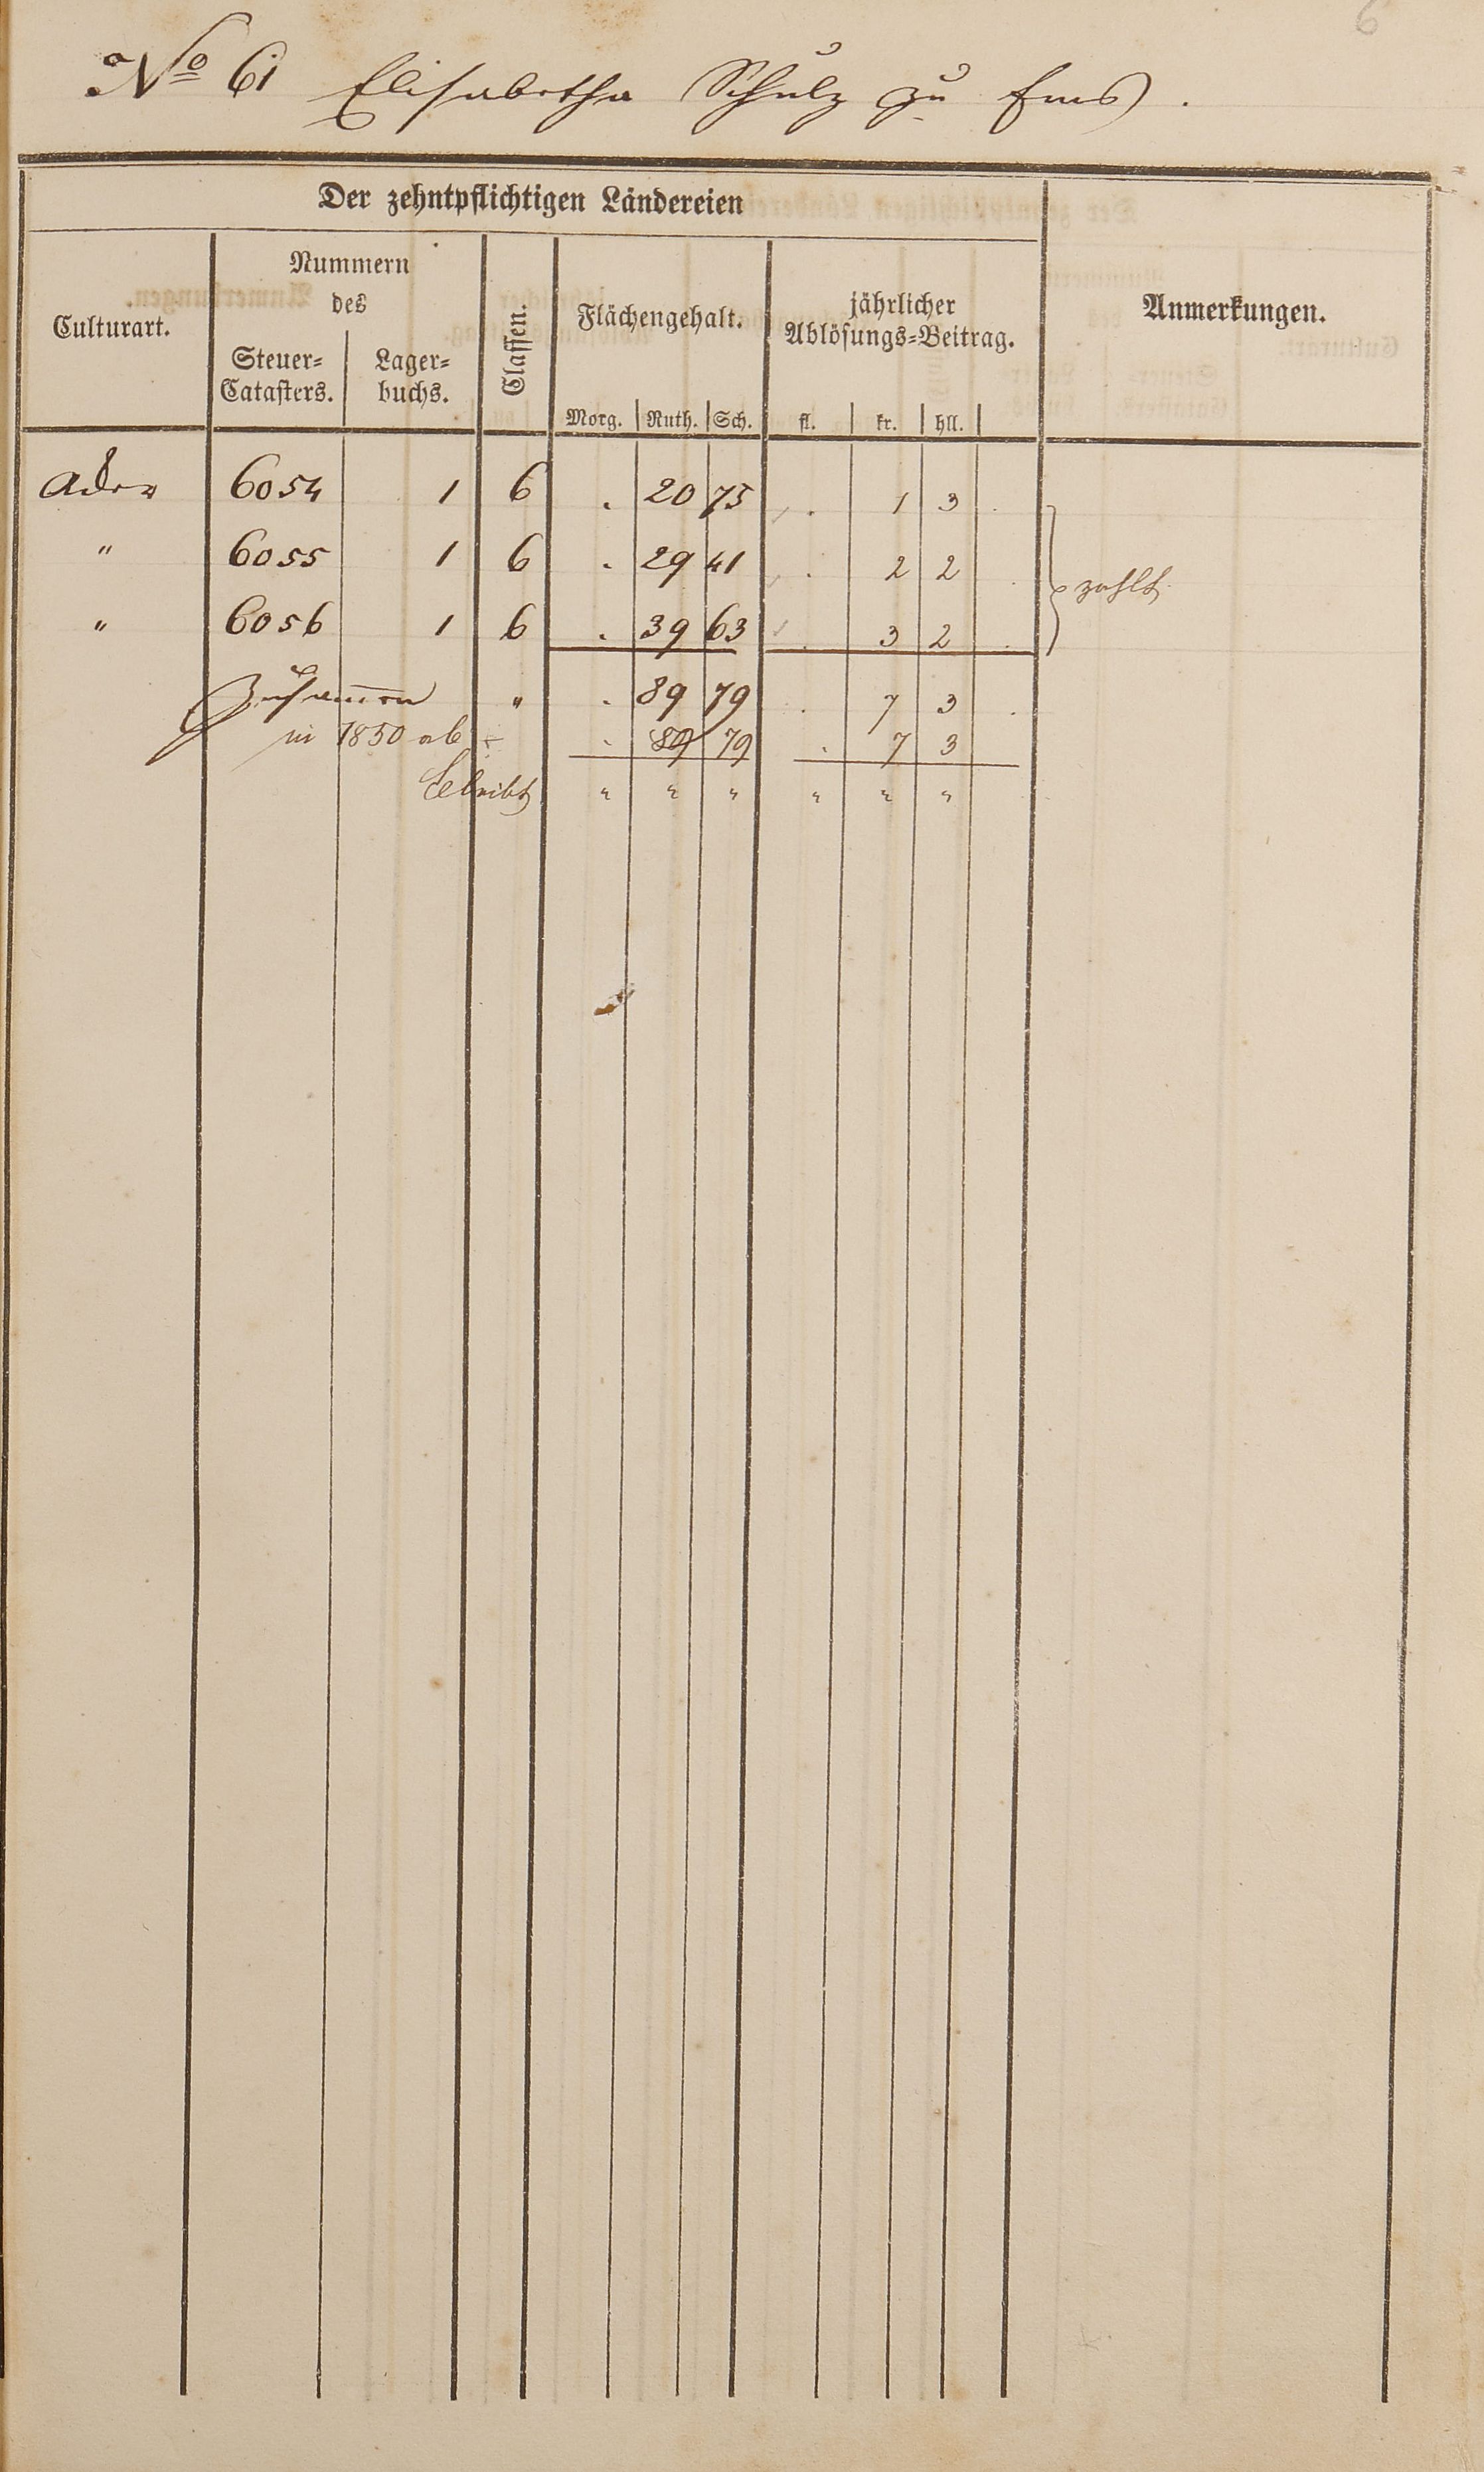 6
No 61 Elisabetha Schulz zu Ems.
Der zehntpflichtigen Ländereien
Culturart.
Nummern
des
Steuer-
Catasters.
Lager-
buchs.
Classen.
Flächengehalt.
Morg. Ruth. Sch.
jährlicher
Ablösungs-Beitrag.
fl. kr. hll.
Anmerkungen.
Acker 6054 1 6 . 20 75 . 1 3 .
" 6055 1 6 . 29 41 . 2 2 . zahlt
" 6056 1 6 . 39 63 . 3 2 .
Zusammen " . 89 79 . 7 3 .
in 1850 ab ÷ . 89 79 . 7 3
bleibt " " " " " "